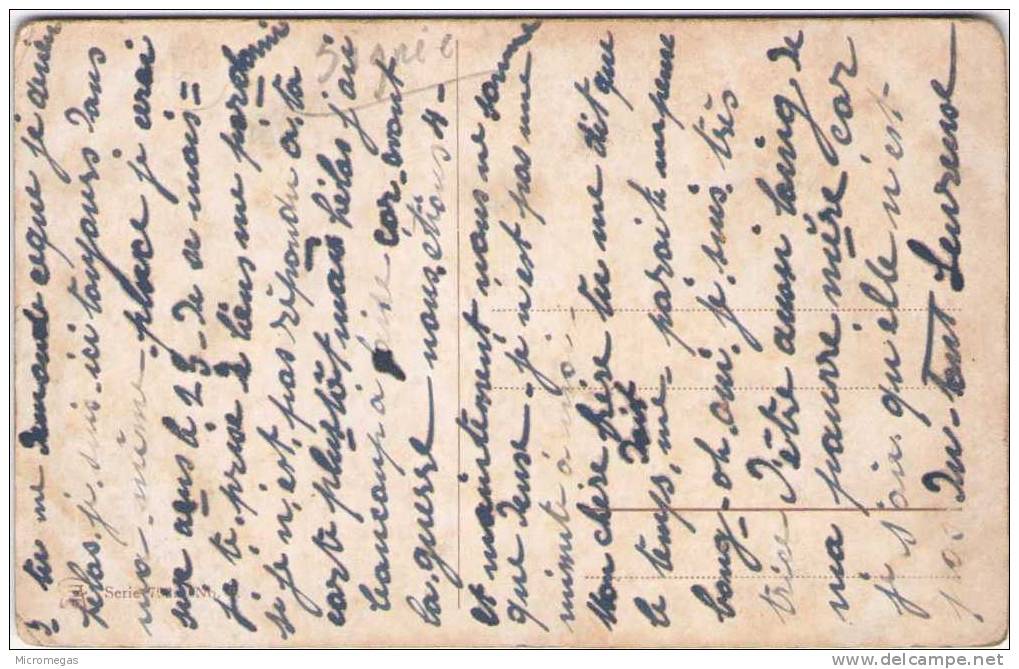 3 tu me demande ceque je devien
hélas, je, suis, ici toujours dans
ma même place je serai
sur
ans le 25 de ce mais =
je te, prise 2 tiens me pardonné
si je n'est, pas répondu as ta
carte plustôt mais hélas j'ai
beaucoup à
car avant
la guerre nous, étions 4-
et maintenant nous ne somme
que deuse - je n'est pas une
minute à moi -
mon chère frère tu me dit que
le temps, me parait un peux
doit
long - oh oui, je, suis très
trice D'être aussi loing de
ma pauvre mére car
je sais qu'elle n'est -
pas Du - tout heureuse
Signée
Serie No.
Micromegas
www.delcampe.net